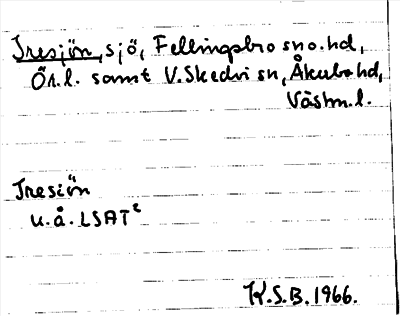 Tresjön, sjö, Fellingsbro sn o. hd,
Ör. l. samt V. Skedvi sn, Åkerbo hd,
Västm. l.
Tresiön
u.å. LSAT²
K.S.B. 1966.